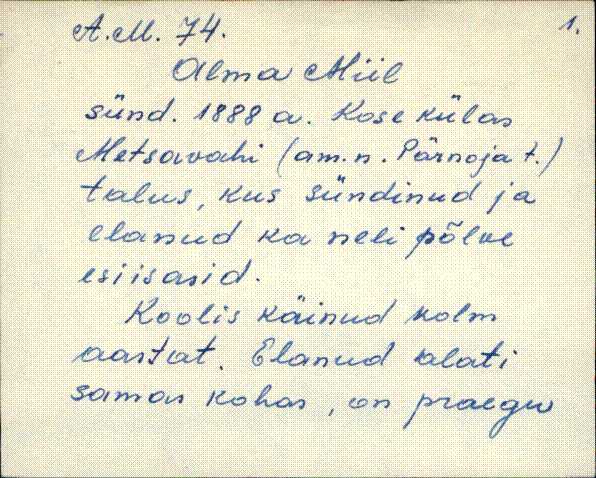 A.M. 74. 1.
Alma Miil
sünd. 1888 a. Kose külas
Metsavahi (am. n. Pärnoja t.)
talus, kus sündinud ja
elanud ka neli põlve
esiisasid.
Koolis käinud kolm
aastat. Elanud alati
samas kohas, on praegu